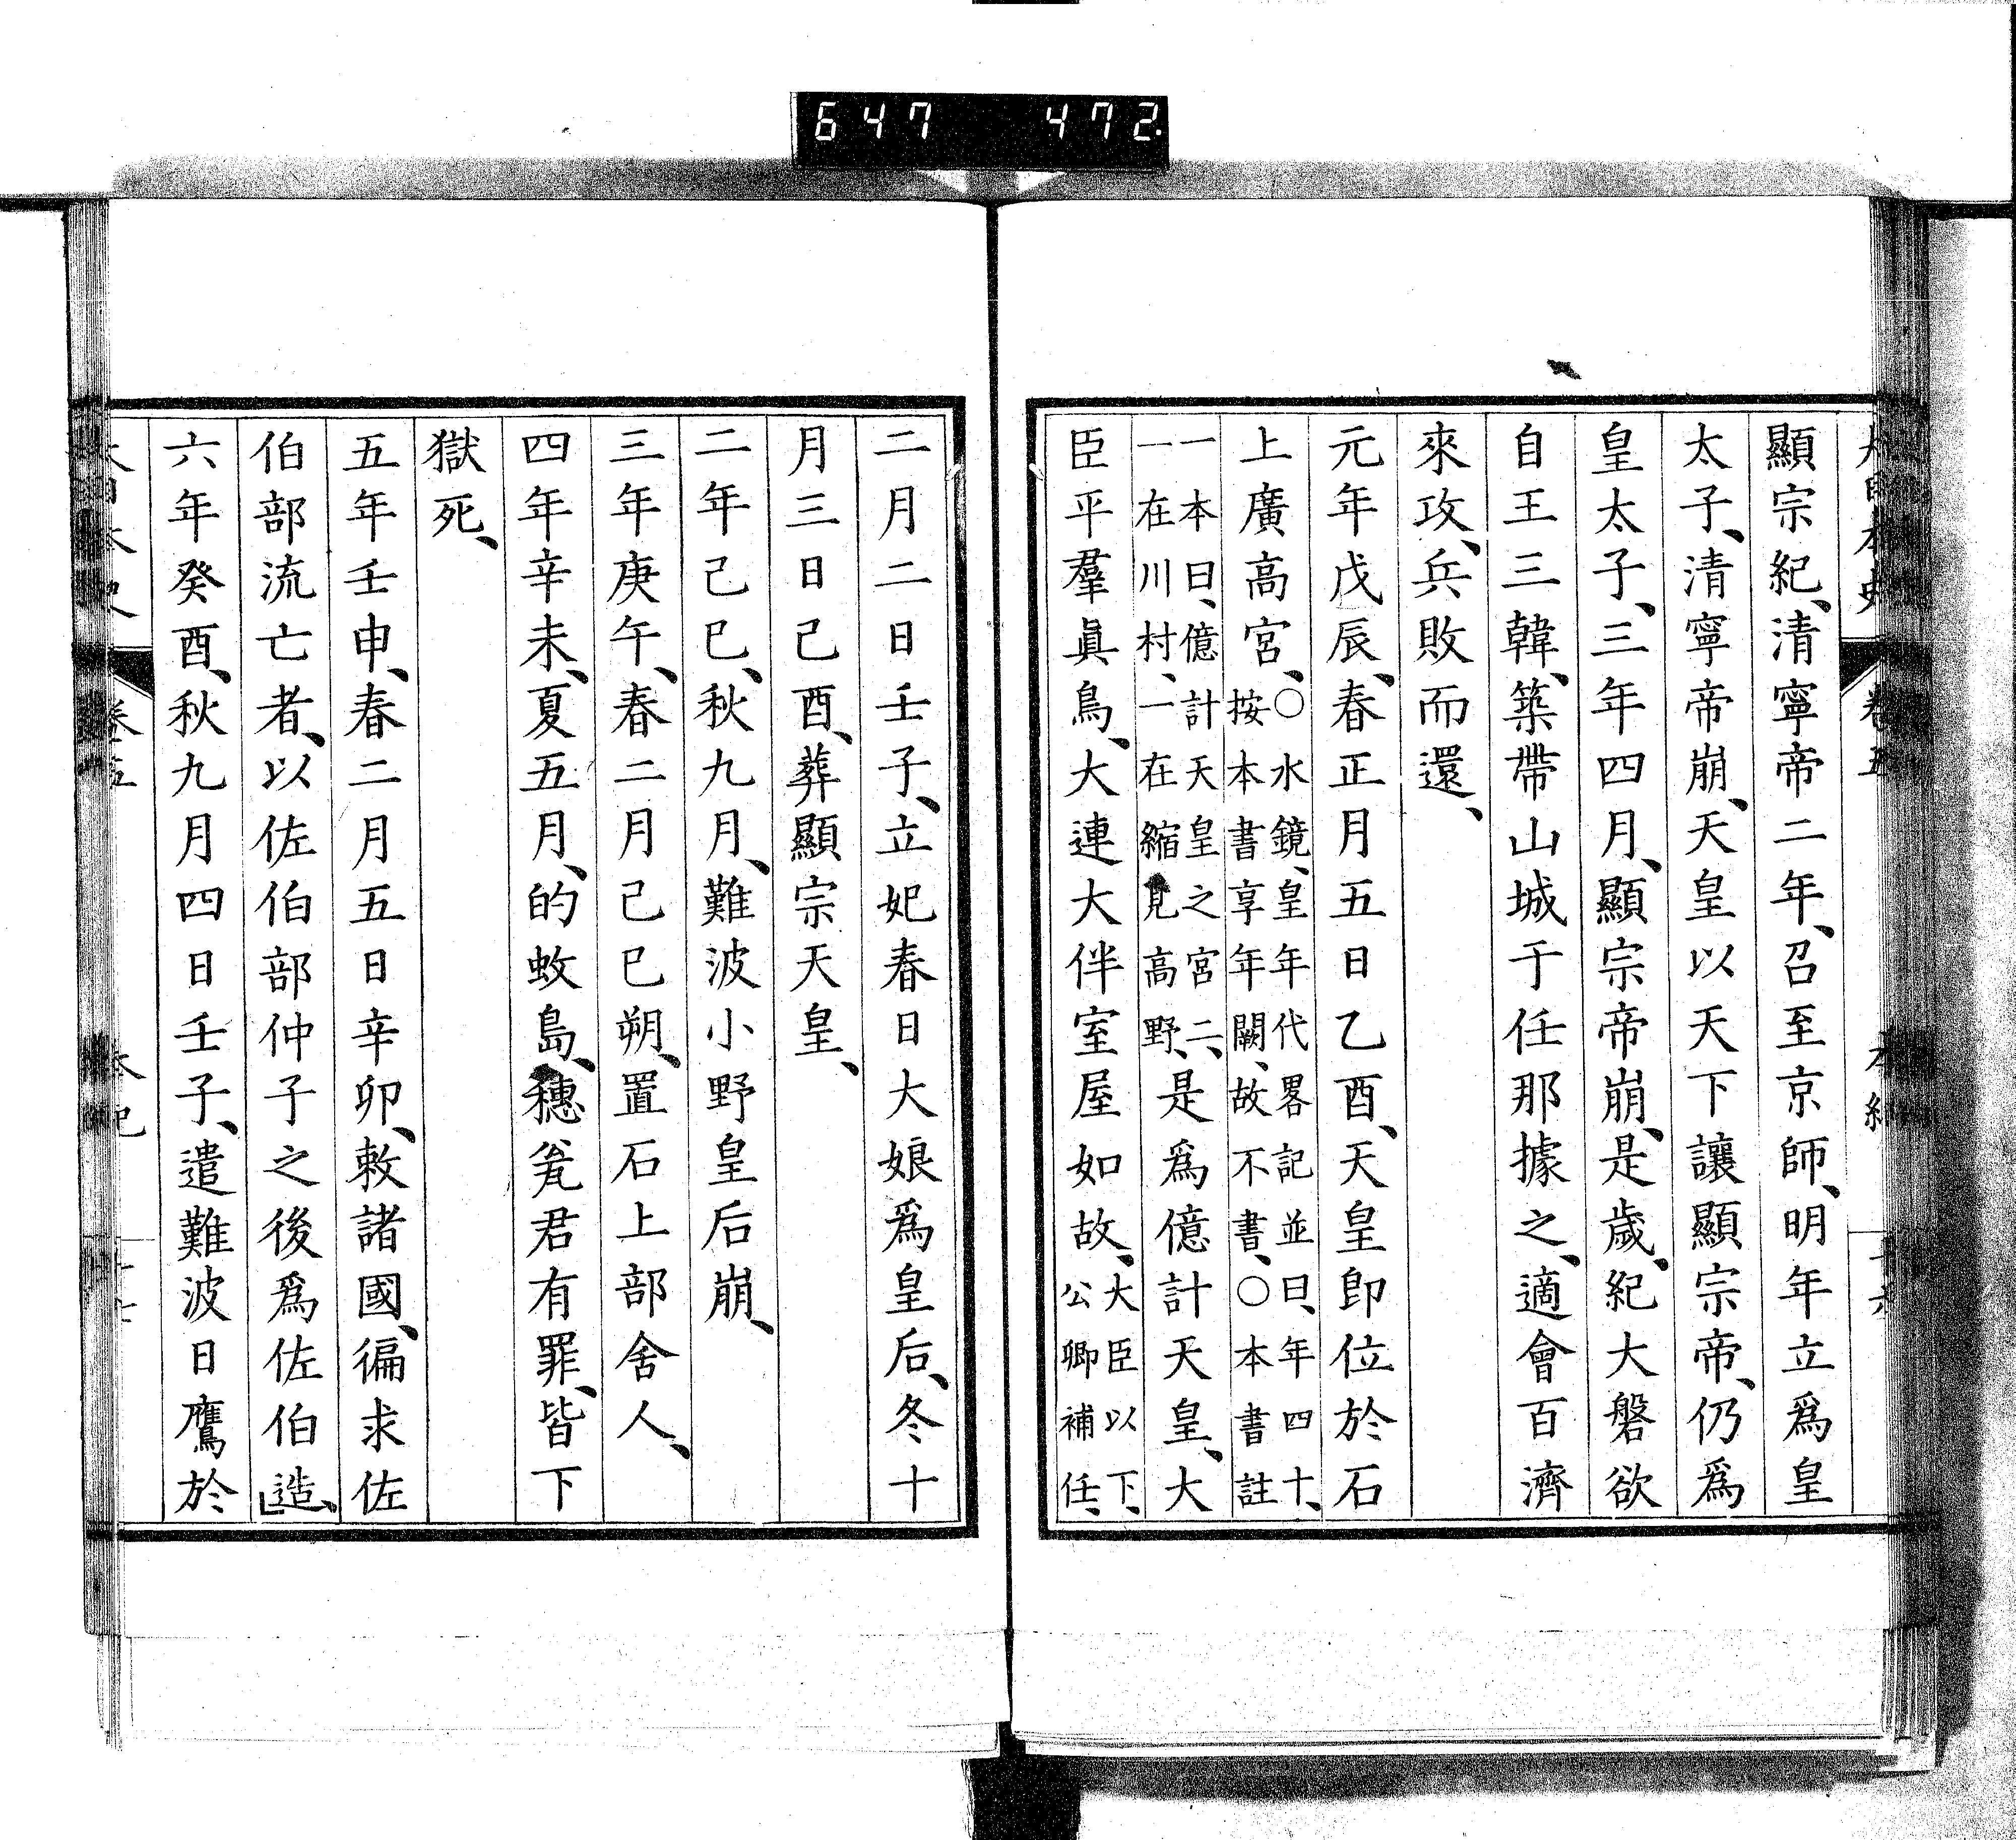 647 472
大日本史 卷五 本紀
顯宗紀、清寧帝二年、召至京師、明年立爲皇
太子、清寧帝崩、天皇以天下讓顯宗帝、仍爲
皇太子、三年四月、顯宗帝崩、是歲、紀大磐欲
自王三韓、築帶山城于任那據之、適會百濟
來攻、兵敗而還、
元年戊辰、春正月五日乙酉、天皇即位於石
上廣高宮、○水鏡、皇年代畧記並曰、年四十、
按本書享年闕、故不書、○本書註
一本曰、億計天皇之宮二、
一在川村、一在縮見高野、是爲億計天皇、大
臣平羣眞鳥、大連大伴室屋如故、大臣以下、
公卿補任、
二月二日壬子、立妃春日大娘爲皇后、冬十
月三日己酉、葬顯宗天皇、
二年己巳、秋九月、難波小野皇后崩、
三年庚午、春二月己巳朔、置石上部舍人、
四年辛未、夏五月、的蚊島、穗瓮君有罪、皆下
獄死、
五年壬申、春二月五日辛卯、敕諸國、徧求佐
伯部流亡者、以佐伯部仲子之後爲佐伯造、
六年癸酉、秋九月四日壬子、遣難波日鷹於
大日本史 卷五 本紀